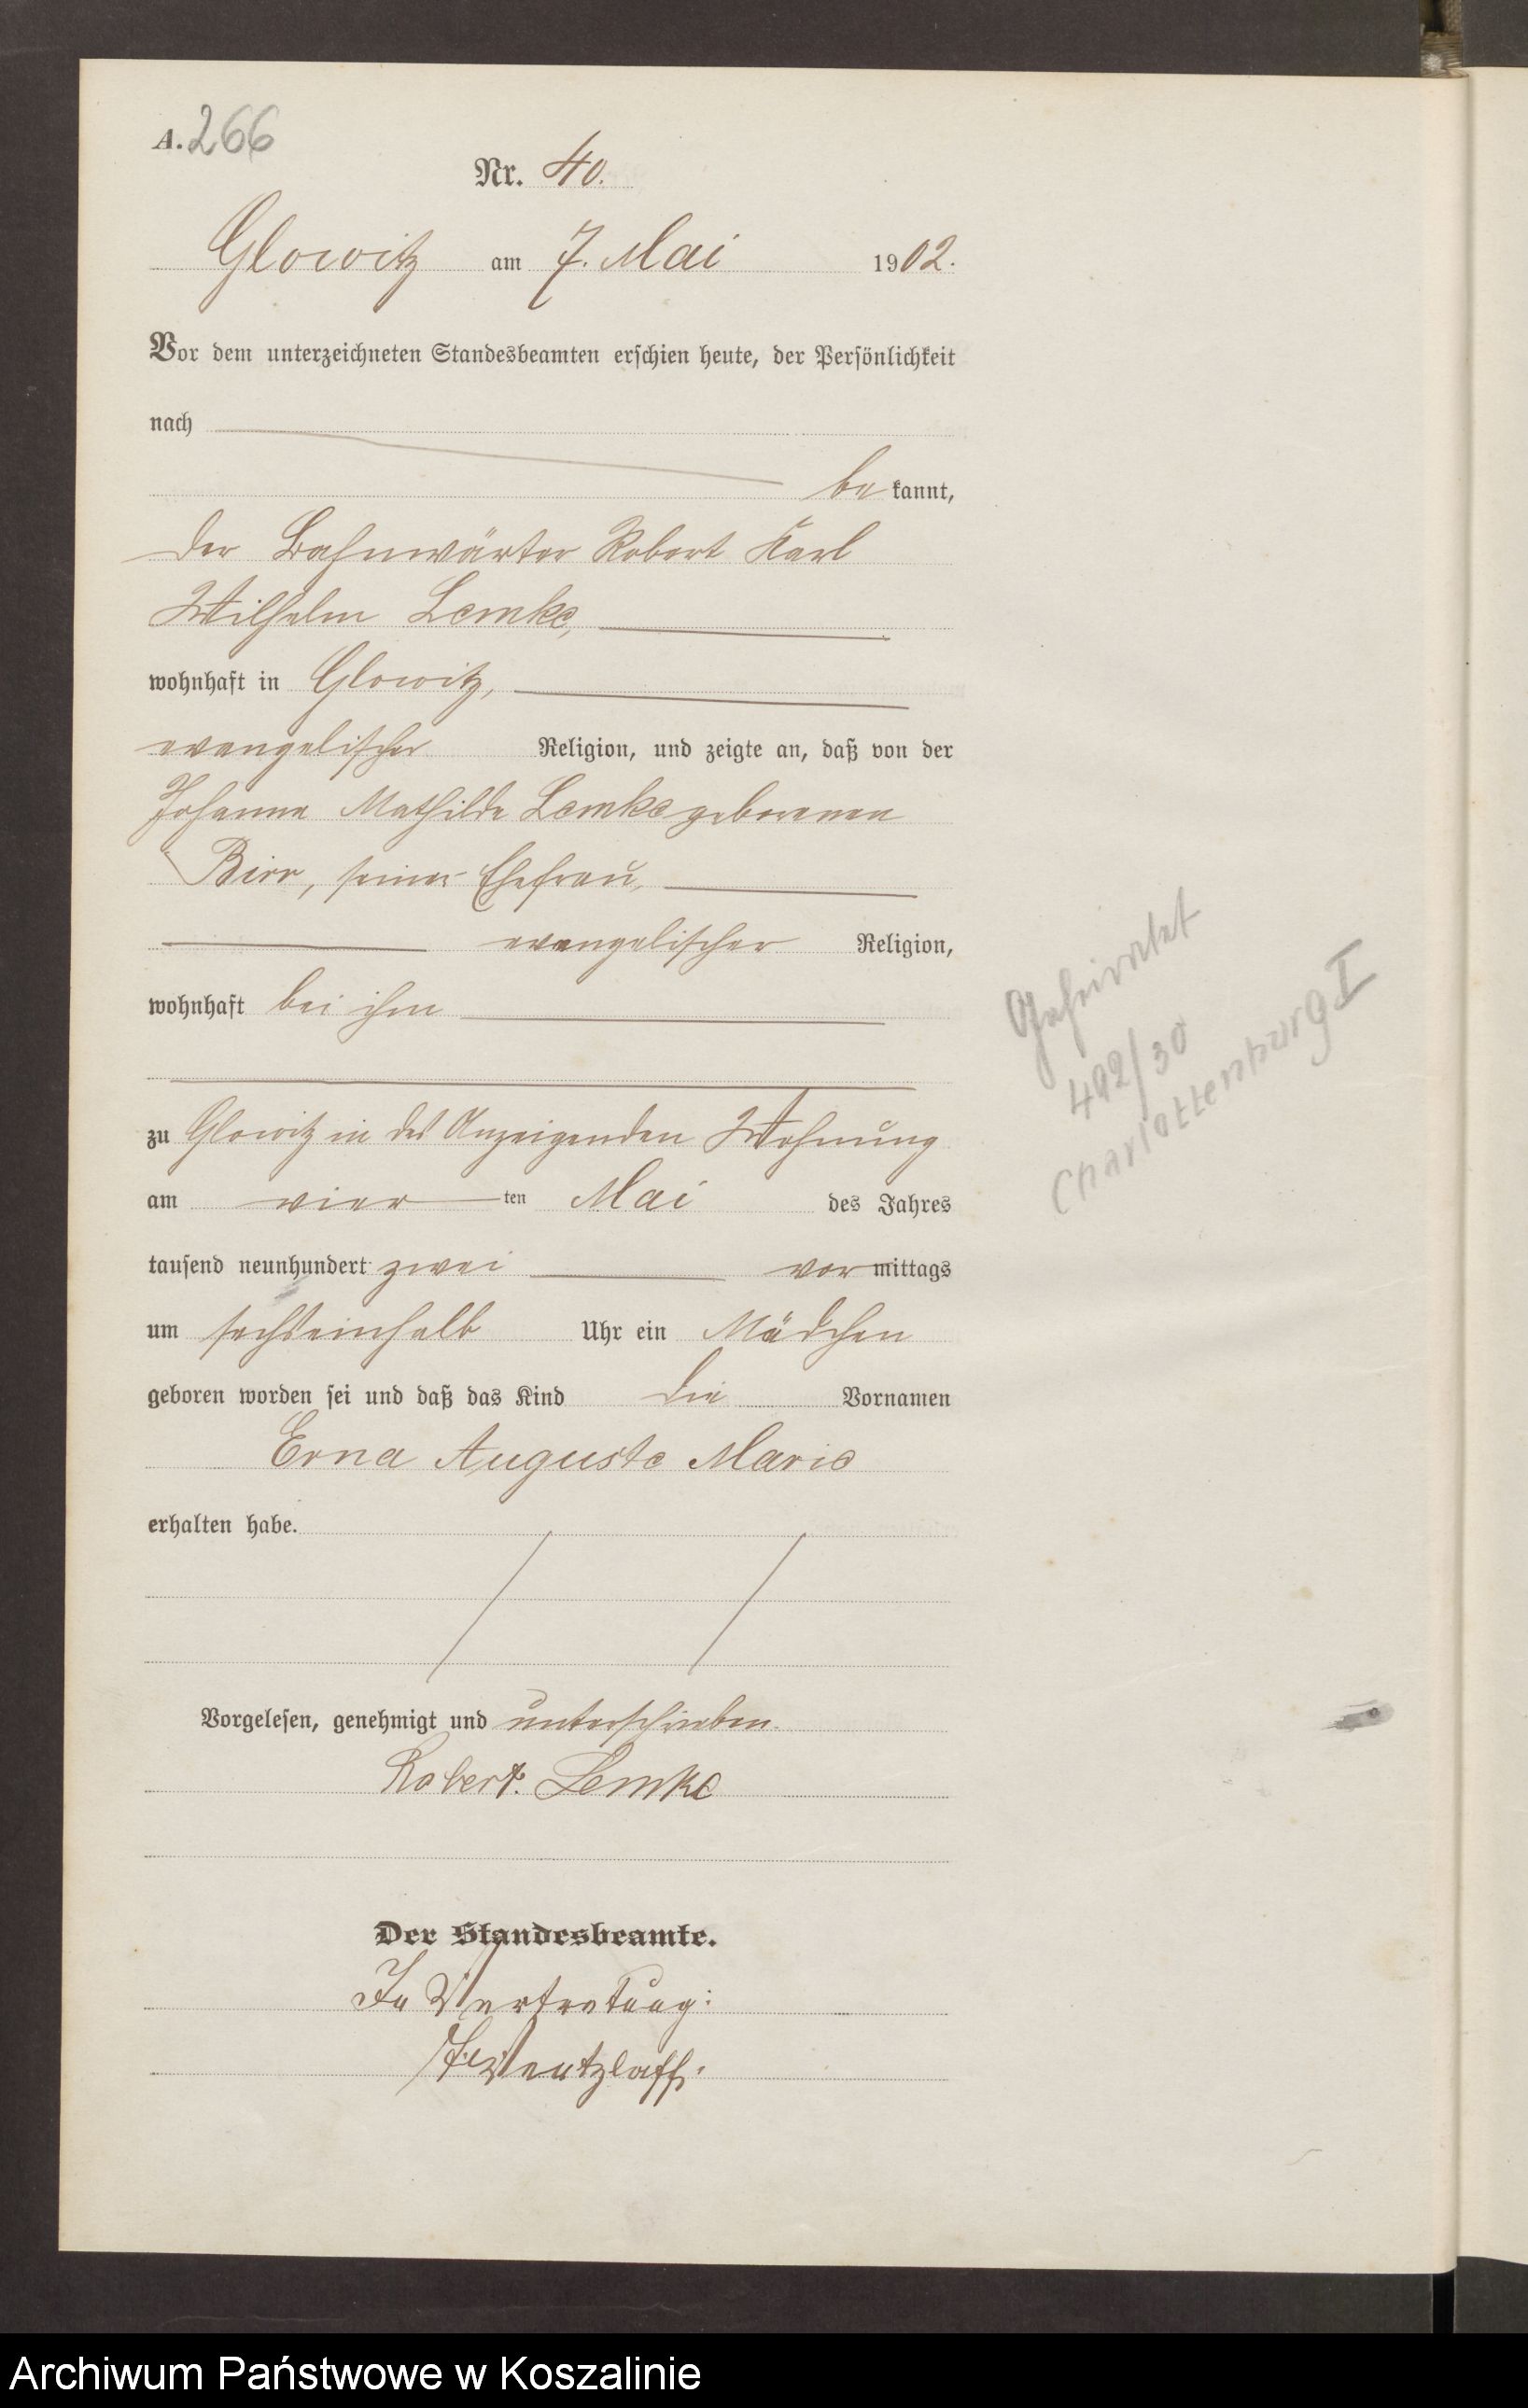 A. 266
Nr. 40.
Glowitz am 7. Mai 1902.
Vor dem unterzeichneten Standesbeamten erschien heute, der Persönlichkeit
nach
bekannt,
der Bahnwärter Robert Karl
Wilhelm Lemke,
wohnhaft in Glowitz,
evangelischer Religion, und zeigte an, daß von der
Johanna Mathilde Lemke geborenen
Birr, seiner Ehefrau,
evangelischer Religion,
wohnhaft bei ihm
zu Glowitz in des Anzeigenden Wohnung
am vier ten Mai des Jahres
tausend neunhundert zwei vormittags
um sechseinhalb Uhr ein Mädchen
geboren worden sei und daß das Kind die Vornamen
Erna Auguste Marie
erhalten habe.
Vorgelesen, genehmigt und unterschrieben.
Robert Lemke
Der Standesbeamte.
In Vertretung:
Wentzlaff.
Geheiratet
492/30
Charlottenburg I
Archiwum Państwowe w Koszalinie